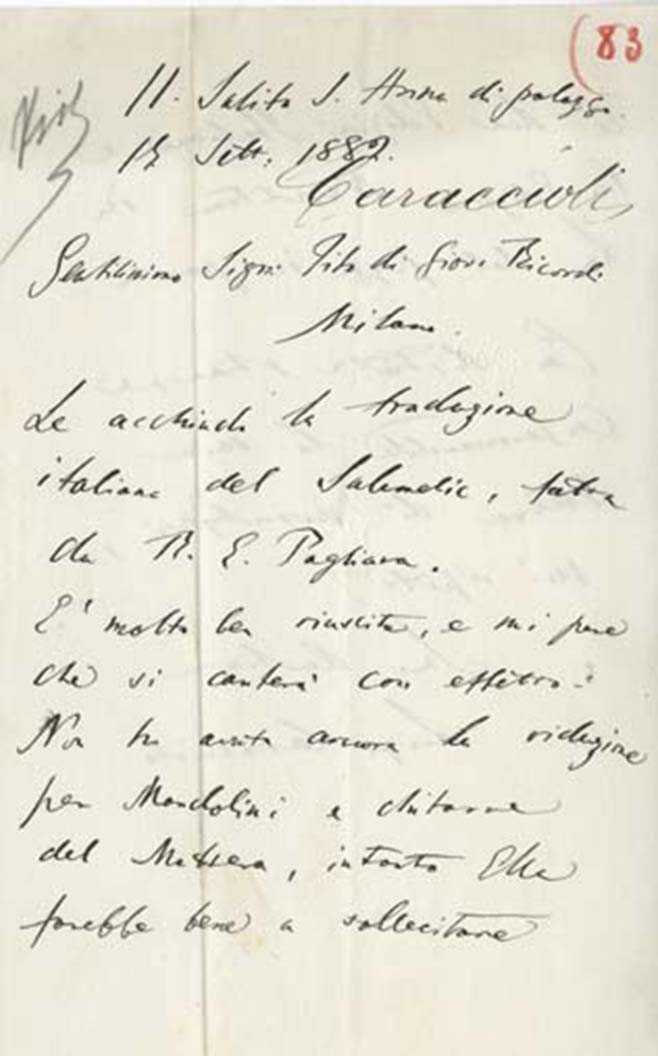 83
11. Salita S. Anna di palazzo
Sett. 1882.
Caracciolo
Gentilissimo Sigr. Tito di Giov. Ricordi
Milano.
Le acchiudo la traduzione
italiana del Salemelic, fatta
da R. E. Pagliara.
E' molto ben riuscita, e mi pare
che si canterà con effetto.
Non ho avuta ancora la riduzione
per Mandolini e chitarre
del Matera, intanto Ella
farebbe bene a sollecitare